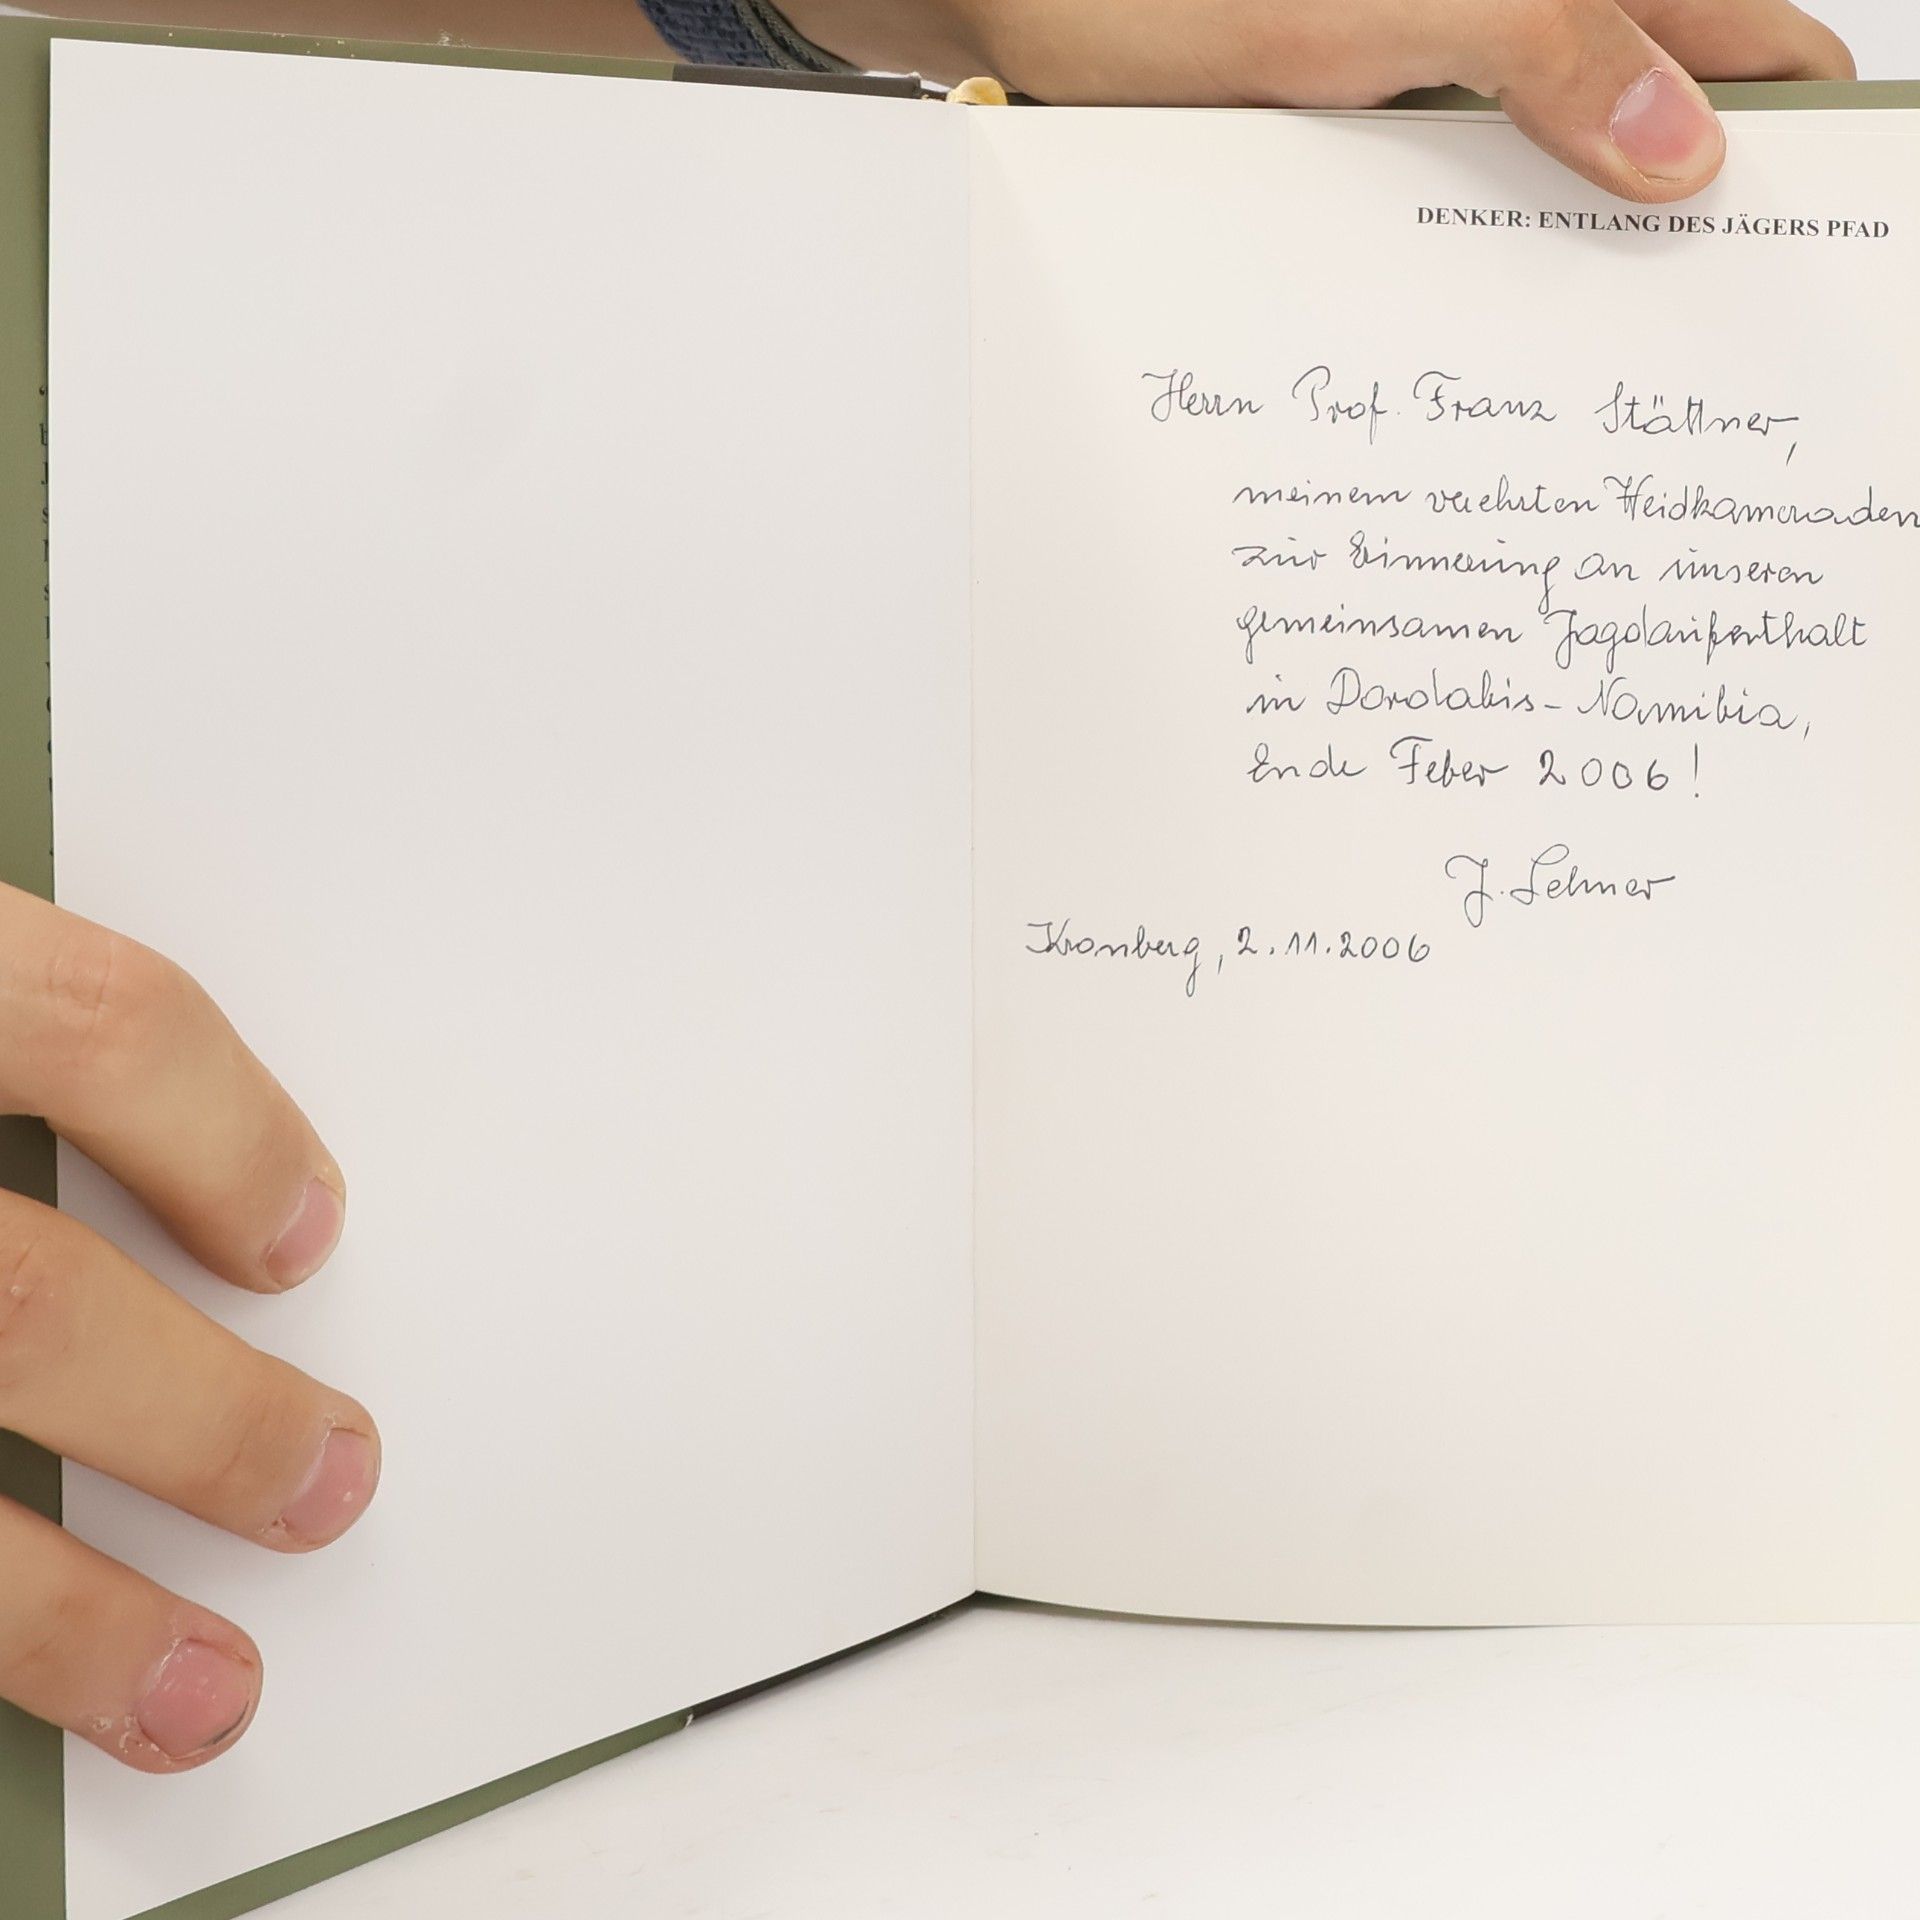 DENKER: ENTLANG DES JÄGERS PFAD
Herrn Prof. Franz Stättner,
meinem verehrten Weidkameraden
zur Erinnerung an unseren
gemeinsamen Jagdaufenthalt
in Dordabis - Namibia,
Ende Feber 2006!
J. Lehner
Kronberg, 2.11.2006